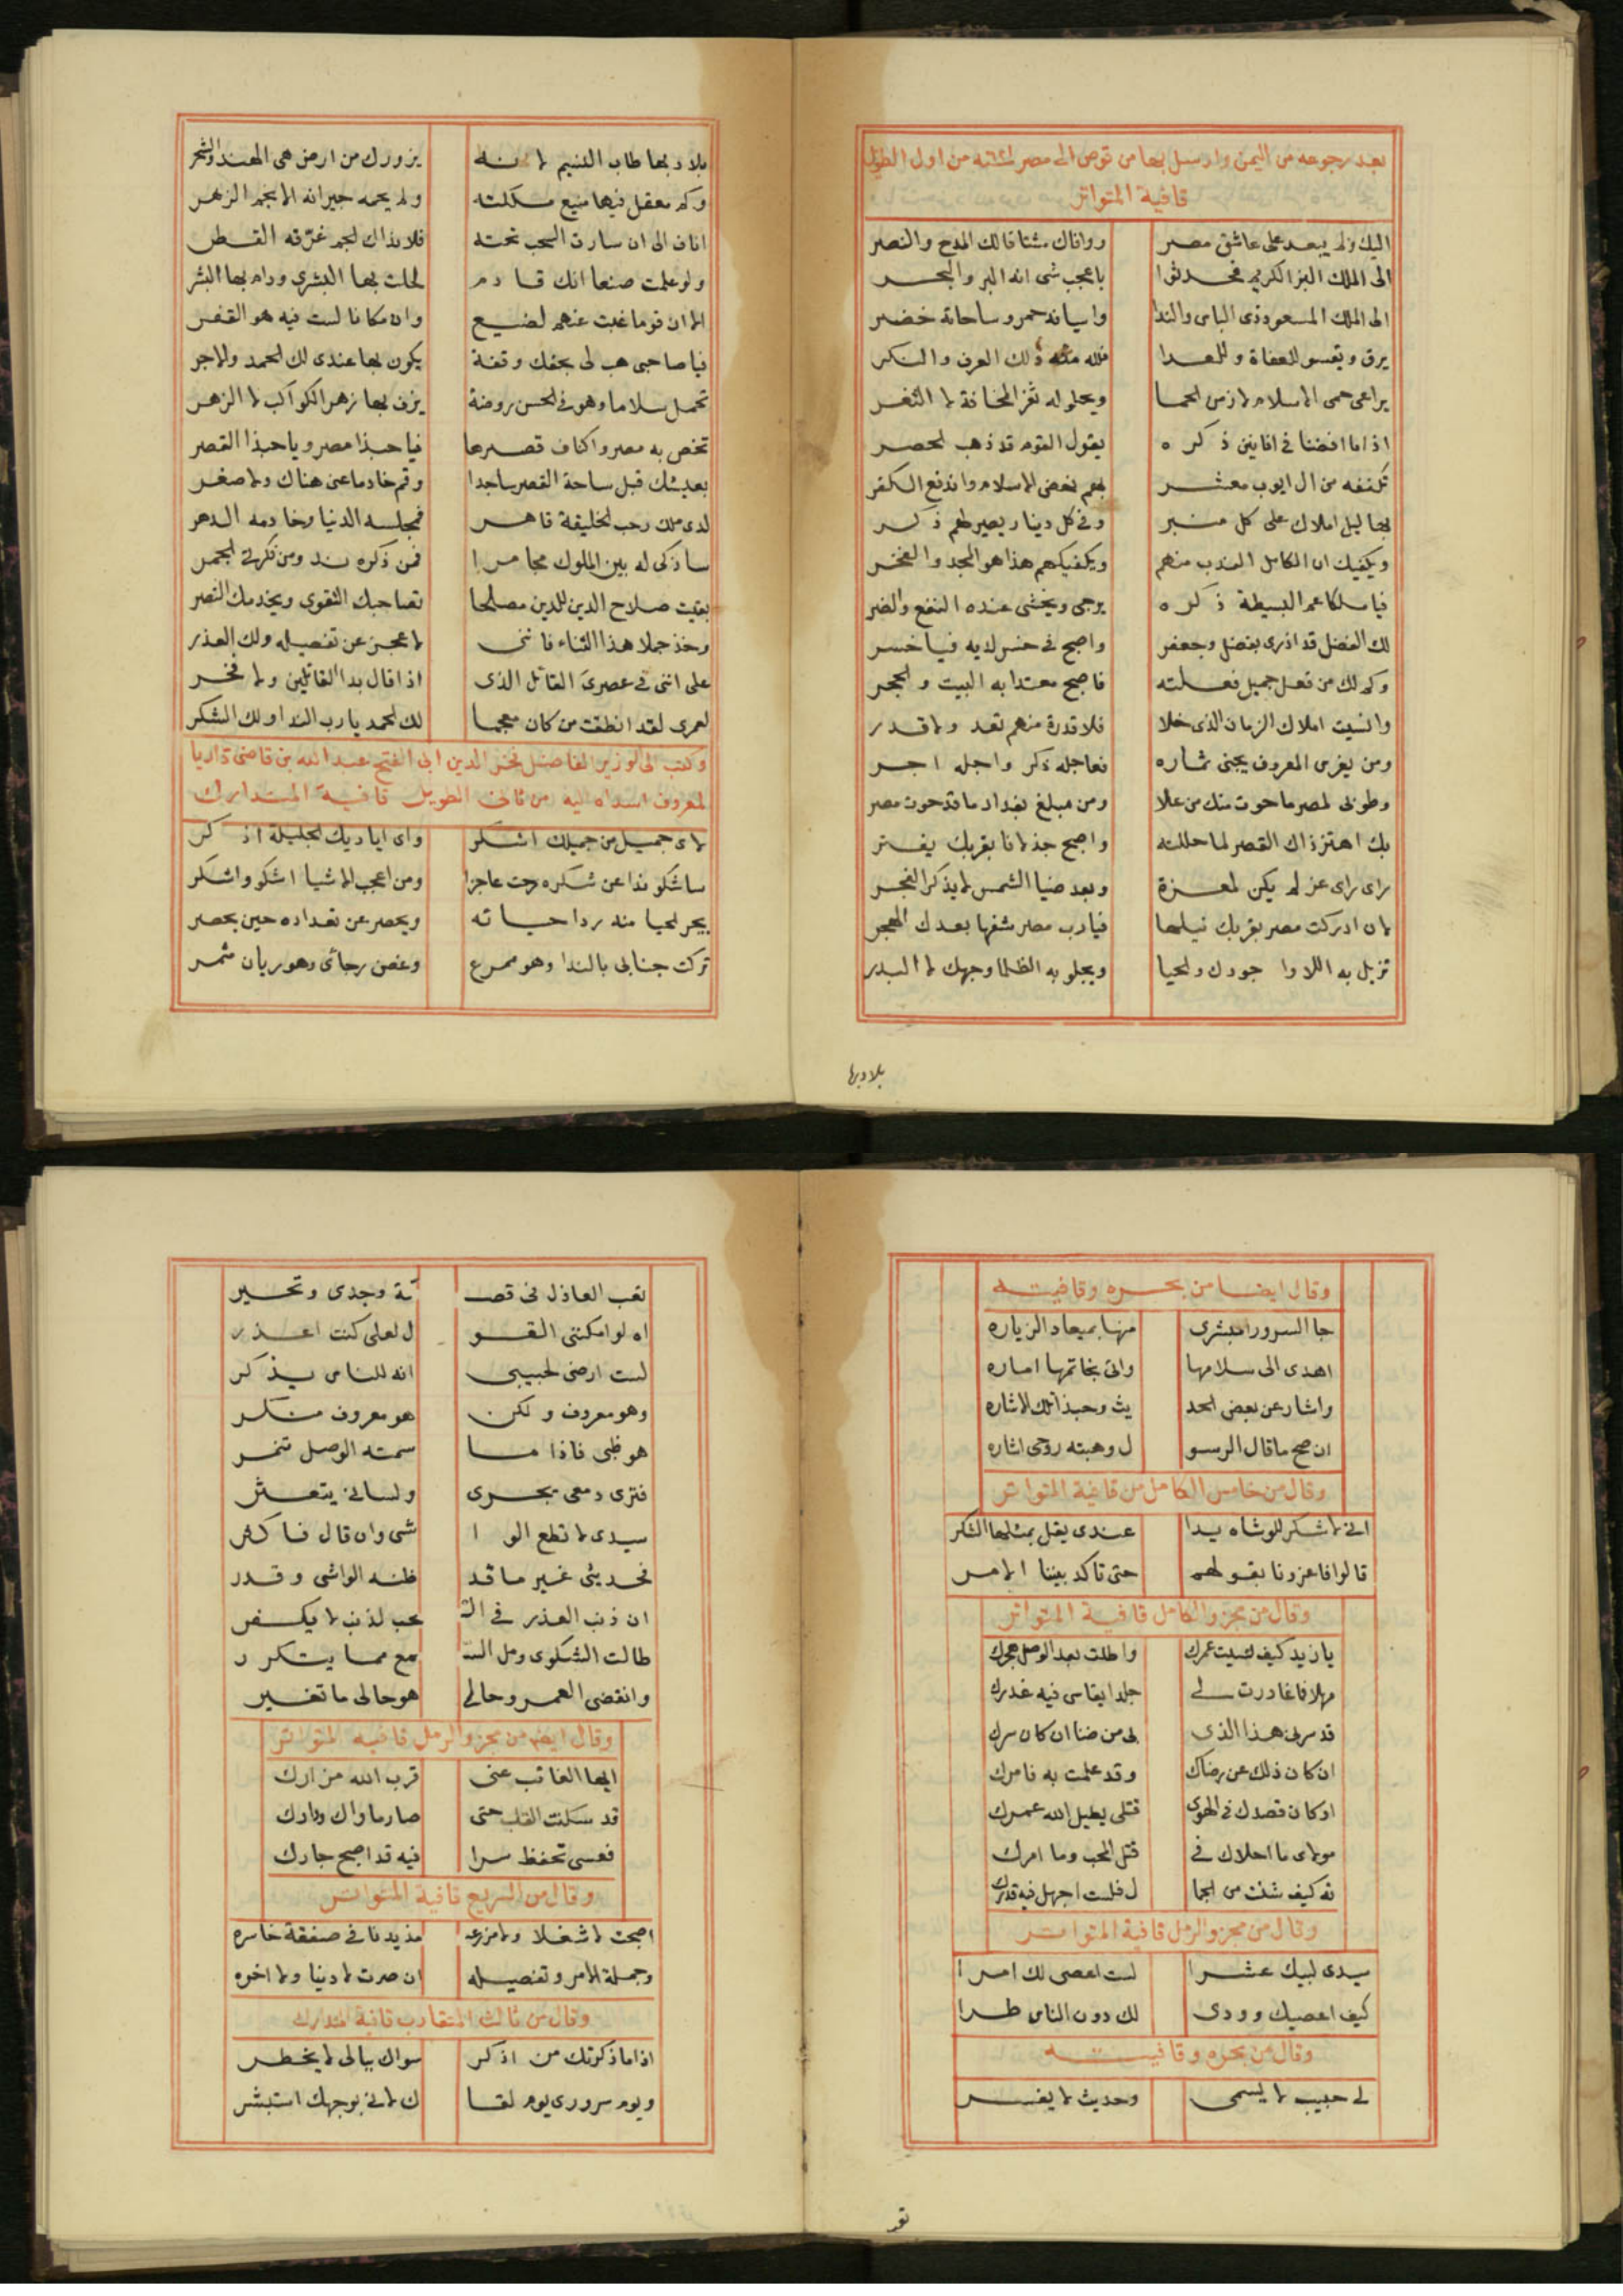 بعد رجوعه من اليمن وارسل بها من قوص الى مصر سنة من اول الطويل
قافية المتواتر
اليك ولم يبعد على عاشق مصر ووافاك مشتاقا لك المدح والنصر
الى الملك البر الكريم فحدثوا باعجب شى انه البر والبحر
الى الملك المسعود ذى الباس والندا واسيافه حمر وساحاته خضر
يرق ويقسو للعفاة وللعدا فلله منه ذلك العرف والنكر
يراعى حمى الاسلام لا زمن الحما ويحلو له ثغر المخافة لا الثغر
اذا ما افضنا فى افانين ذكره يقول القوم قد ذهب الحصر
تكنفه من ال ايوب معشر بهم نهض الاسلام واندفع الكفر
بهاليل املاك على كل منبر وفى كل دينار يصير لهم ذكر
ويكفيك ان الكامل الندب منهم ويكفيكهم هذا هو المجد والفخر
فيا ملكا عم البسيطة ذكره يرجى ويخشى عنده النفع والضر
لك الفضل قد ازرى بفضل وجعفر واصبح فى خسر لديه فيا خسر
وكم لك من فعل جميل فعلته فاصبح معتدا به البيت والحجر
وانسيت املاك الزمان الذى خلا فلا قدرة منهم تعد ولا قدر
ومن يغرس المعروف يجنى ثماره فعاجله ذكر واجله اجر
وطوبى لمصر ما حوت منك من علا ومن مبلغ بغداد ما قد حوت مصر
بك اهتز ذاك القصر لما حللته واصبح جذلانا بقربك يفتر
راى راى عز لم يكن لمعزة وبعد ضيا الشمس لا يذكر الفجر
لان ادركت مصر بقربك نيلها فيارب مصر شفها بعدك الهجر
تزيل به اللاوا جودك والحيا ويجلو به الظلما وجهك لا البدر
بلاد بها
بلاد بها طاب النسيم لانه يزورك من ارض هى الهند والشحر
وكم معقل فيها منيع ملكته ولم يحمه جيرانه الانجم الزهر
اناف الى ان سارت السحب تحته فلا بذاك الجم غرقه القطر
ولو علمت صنعا انك قادم لحلت بها البشرى ودام بها البشر
الا ان قوما غبت عنهم لضيع وان مكانا لست فيه هو القفر
فيا صاحبى هب لى بحقك وقفة يكون بها عندى لك الحمد والاجر
تحمل سلاما وهو فى الحسن روضة يزف بها زهر الكواكب لا الزهر
تخص به مصر واكناف قصرها فيا حبذا مصر ويا حبذا القصر
بعيشك قبل ساحة القصر ساجدا وقم خادما عنى هناك ولا صغر
لدى ملك رحب الخليقة قاهر فمجلسه الدنيا وخادمه الدهر
ساذكى له بين الملوك مجامرا فمن ذكره ند ومن فكرتى الجمر
بقيت صلاح الدين للدين مصلحا تصاحبك التقوى ويخدمك النصر
وخذ جملا هذا الثناء فاننى لاعجز عن تفصيله ولك العذر
على اننى فى عصرى القائل الذى اذا قال بدا القائلين ولا فخر
لعمرى لقد انطقت من كان معجما لك الحمد يارب الندا ولك الشكر
وكتب الى الوزير الفاضل فخر الدين ابى الفتح عبد الله بن قاضى داريا
لمعروف اسداه اليه من ثانى الطويل قافية المتدارك
لاى جميل من جميلك اشكر واى اياديك الجليلة اذكر
ساشكو ندا عن شكره رحت عاجزا ومن اعجب الاشيا اشكو واشكر
يجر الحيا منه ردا حيائه ويحصر عن تعداده حين يحصر
تركت جنابى بالندا وهو ممرع وغصن رجاى وهو ريان مثمر
وقال ايضا من بحره وقافيته
جا السرور مبشرى منها بميعاد الزياره
اهدى الى سلامها واتى بخاتمها اماره
واشار عن بعض الحد يث وحبذا تلك الاشاره
ان صح ما قال الرسو ل وهبته روحى اشاره
وقال من خامس الكامل من قافية المتواتر
انى لاشكر للوشاه يدا عندى يقل بمثلها الشكر
قالوا فاغرونا بقولهم حتى تاكد بيننا الامر
وقال من مجزو الكامل قافية المتواتر
يا زيد كيف نسيت عمرك واطلت بعد الوصل هجرك
مهلا فما غادرت لى جلدا يقاسى فيه غدرك
قد سرنى هذا الذى بى من ضنا ان كان سرك
ان كان ذلك عن رضاك وقد علمت به فامرك
او كان قصدك فى الهوى قتلى يطيل الله عمرك
مولاى ما احلاك فى قتل المحب وما امرك
ته كيف شئت من الجما ل فلست اجهل فيه قدرك
وقال من مجزو الرمل قافية المتواتر
سيدى لبيك عشرا لست اعصى لك امرا
كيف اعصيك وودى لك دون الناس طرا
وقال من بحره وقافيته
لى حبيب لا يسمى وحديث لا يفسر
تعب
تعب العاذل فى قصـ ـة وجدى وتحير
اه لو امكننى القو ل لعلى كنت اعذر
لست ارضى لحبيبى انه للناس يذكر
وهو معروف ولكن هو معروف منكر
هو ظبى فاذا ما سمته الوصل تنمر
فترى دمعى يجرى ولسانى يتعثر
سيدى لا تطع الوا شى وان قال فاكثر
فحديثى غير ما قد ظنه الواشى وقدر
ان ذنب العذر فى الـ ـحب لذنب لا يكفر
طالت الشكوى ومل السـ ـمع مما يتكرر
وانقضى العمر وحالى هو حالى ما تغير
وقال ايضا من مجزو الرمل قافيه المتواتر
ايها الغائب عنى قرب الله مزارك
قد سكنت القلب حتى صار ماواك ودارك
فعسى تحفظ سرا فيه قد اصبح جارك
وقال من السريع قافية المتواتر
اصبحت لا شغلا ولا مزرعه مذبذبا فى صفقة خاسره
وجملة الامر وتفصيله ان صرت لا دنيا ولا اخره
وقال من ثالث المتقارب قافية المتدارك
اذا ما ذكرتك من اذكر سواك ببالى لا يخطر
ويوم سرورى يوم لقا ك لانى بوجهك استبشر